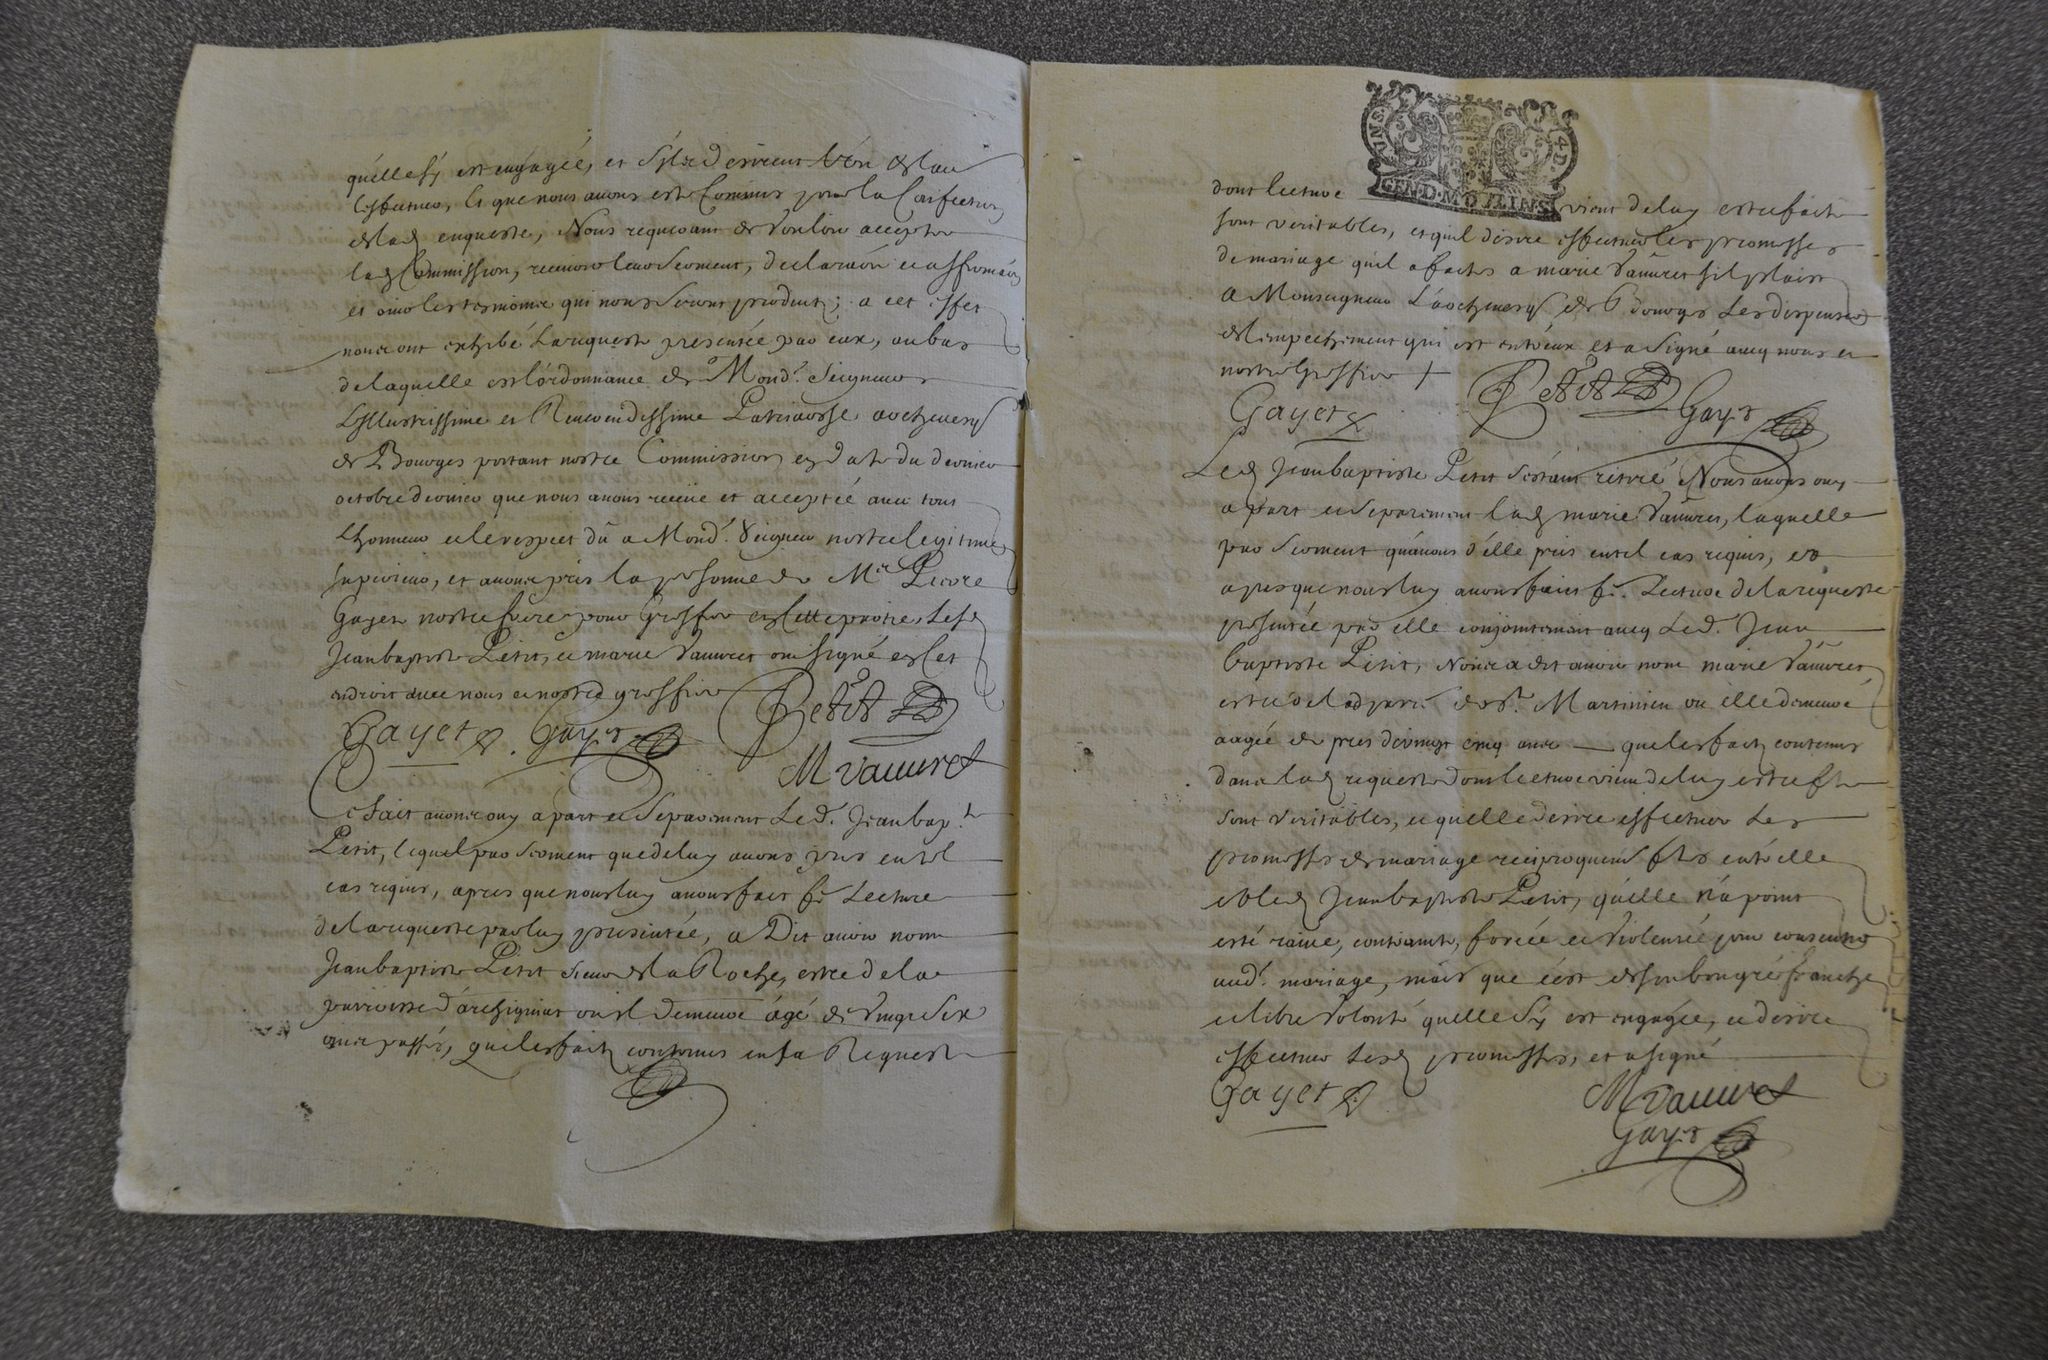 quelle sy est engagée, et
effectuer, et que nous avons esté Commis pour la Confection
de lad enqueste, Nous requerant de vouloir accepter
lad Commission, recevoir leur serment, declaraon et affirmaon
et ouir les tesmoins qui nous seront produits; a cet effet
nous ont exhibé la requeste presentée par eux, au bas
de laquelle est l'ordonnance de Mond. Seigneur
L'Illustrissime et Reverendissime Patriarche archevesq
de Bourges portant nostre Commission en date du dernier
octobre dernier que nous avons receüe et acceptée avec tout
l'honneur et le respect dû a Mond. Seigneur nostre legitime
superieur, et avons pris la personne de Mre Pierre
Gayet nostre frere pour Greffier en cette partie, lesd
Jean baptiste Petit, et marie Vauvret ont signé en cet
endroit avec nous et nostred greffier
Gayet Gayet Petit
M Vauvret
Ce Fait avons ouy a part et separement Led. Jean bap.te
Petit, lequel par serment que de luy avons pris en tel
cas requis, apres que nous luy avons fait fe. Lecture
de la requeste par luy presentée, a Dit avoir nom
Jean baptiste Petit sieur de la Roche, estre de la
parroisse d'archignat ou il demeure âgé de vingt six
ans passés, que les faits contenus en sa Requeste
dont lecture vient de luy estre faite
UNS 4D
GEN.D.MOULINS
sont veritables, et quil desire effectuer les promesses
de mariage quil a faites a marie Vauvret sil plaist
a Monseigneur L'archevesq de Bourges Les dispenser
de l'empechement qui est entreux et a signé avec nous et
nostre Greffier
Gayet Petit Gayet
Led Jean baptiste Petit s'estant retiré Nous avons ouy
a part et separement lad marie Vauvret, laquelle
par serment qu'avons d'elle pris en tel cas requis, et
apres que nous luy avons fait fe. Lecture de la requeste
presentée par elle conjointement avec Led. Jean
baptiste Petit, Nous a dit avoir nom marie Vauvret
estre de lad parr. de St. Martinien ou elle demeure
aagée de pres de vingt cinq ans que les faits contenus
dans lad requeste dont lecture vient de luy estre fte
sont veritables, et quelle desire effectuer Les
promesses de mariage reciproquemt ftes entre elle
et led Jean baptiste Petit, quelle n'a point
esté ravie, contrainte, forcée et violentée pour consentir
aud. mariage, mais que c'est de son bon gré franche
et libre volonté quelle sy est engagée, et desire
effectuer Lesd promesses, et a signé
Gayet M Vauvret
Gayet